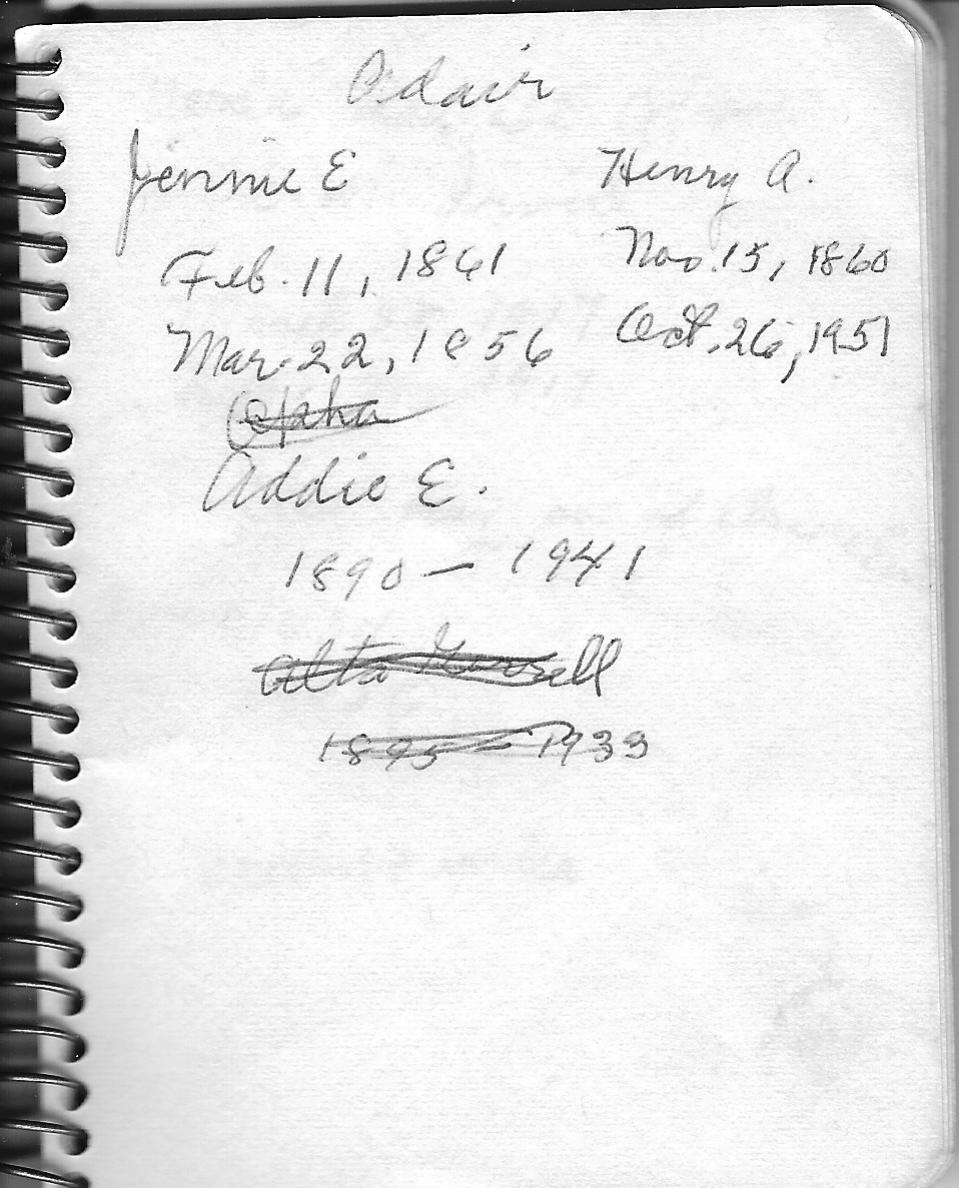 Adair
Jennie E Henry A.
Feb. 11, 1861 Nov. 15, 1860
Mar. 22, 1856 Oct. 26, 1951
Addie E.
1890 — 1941
Alta
1895 - 1933